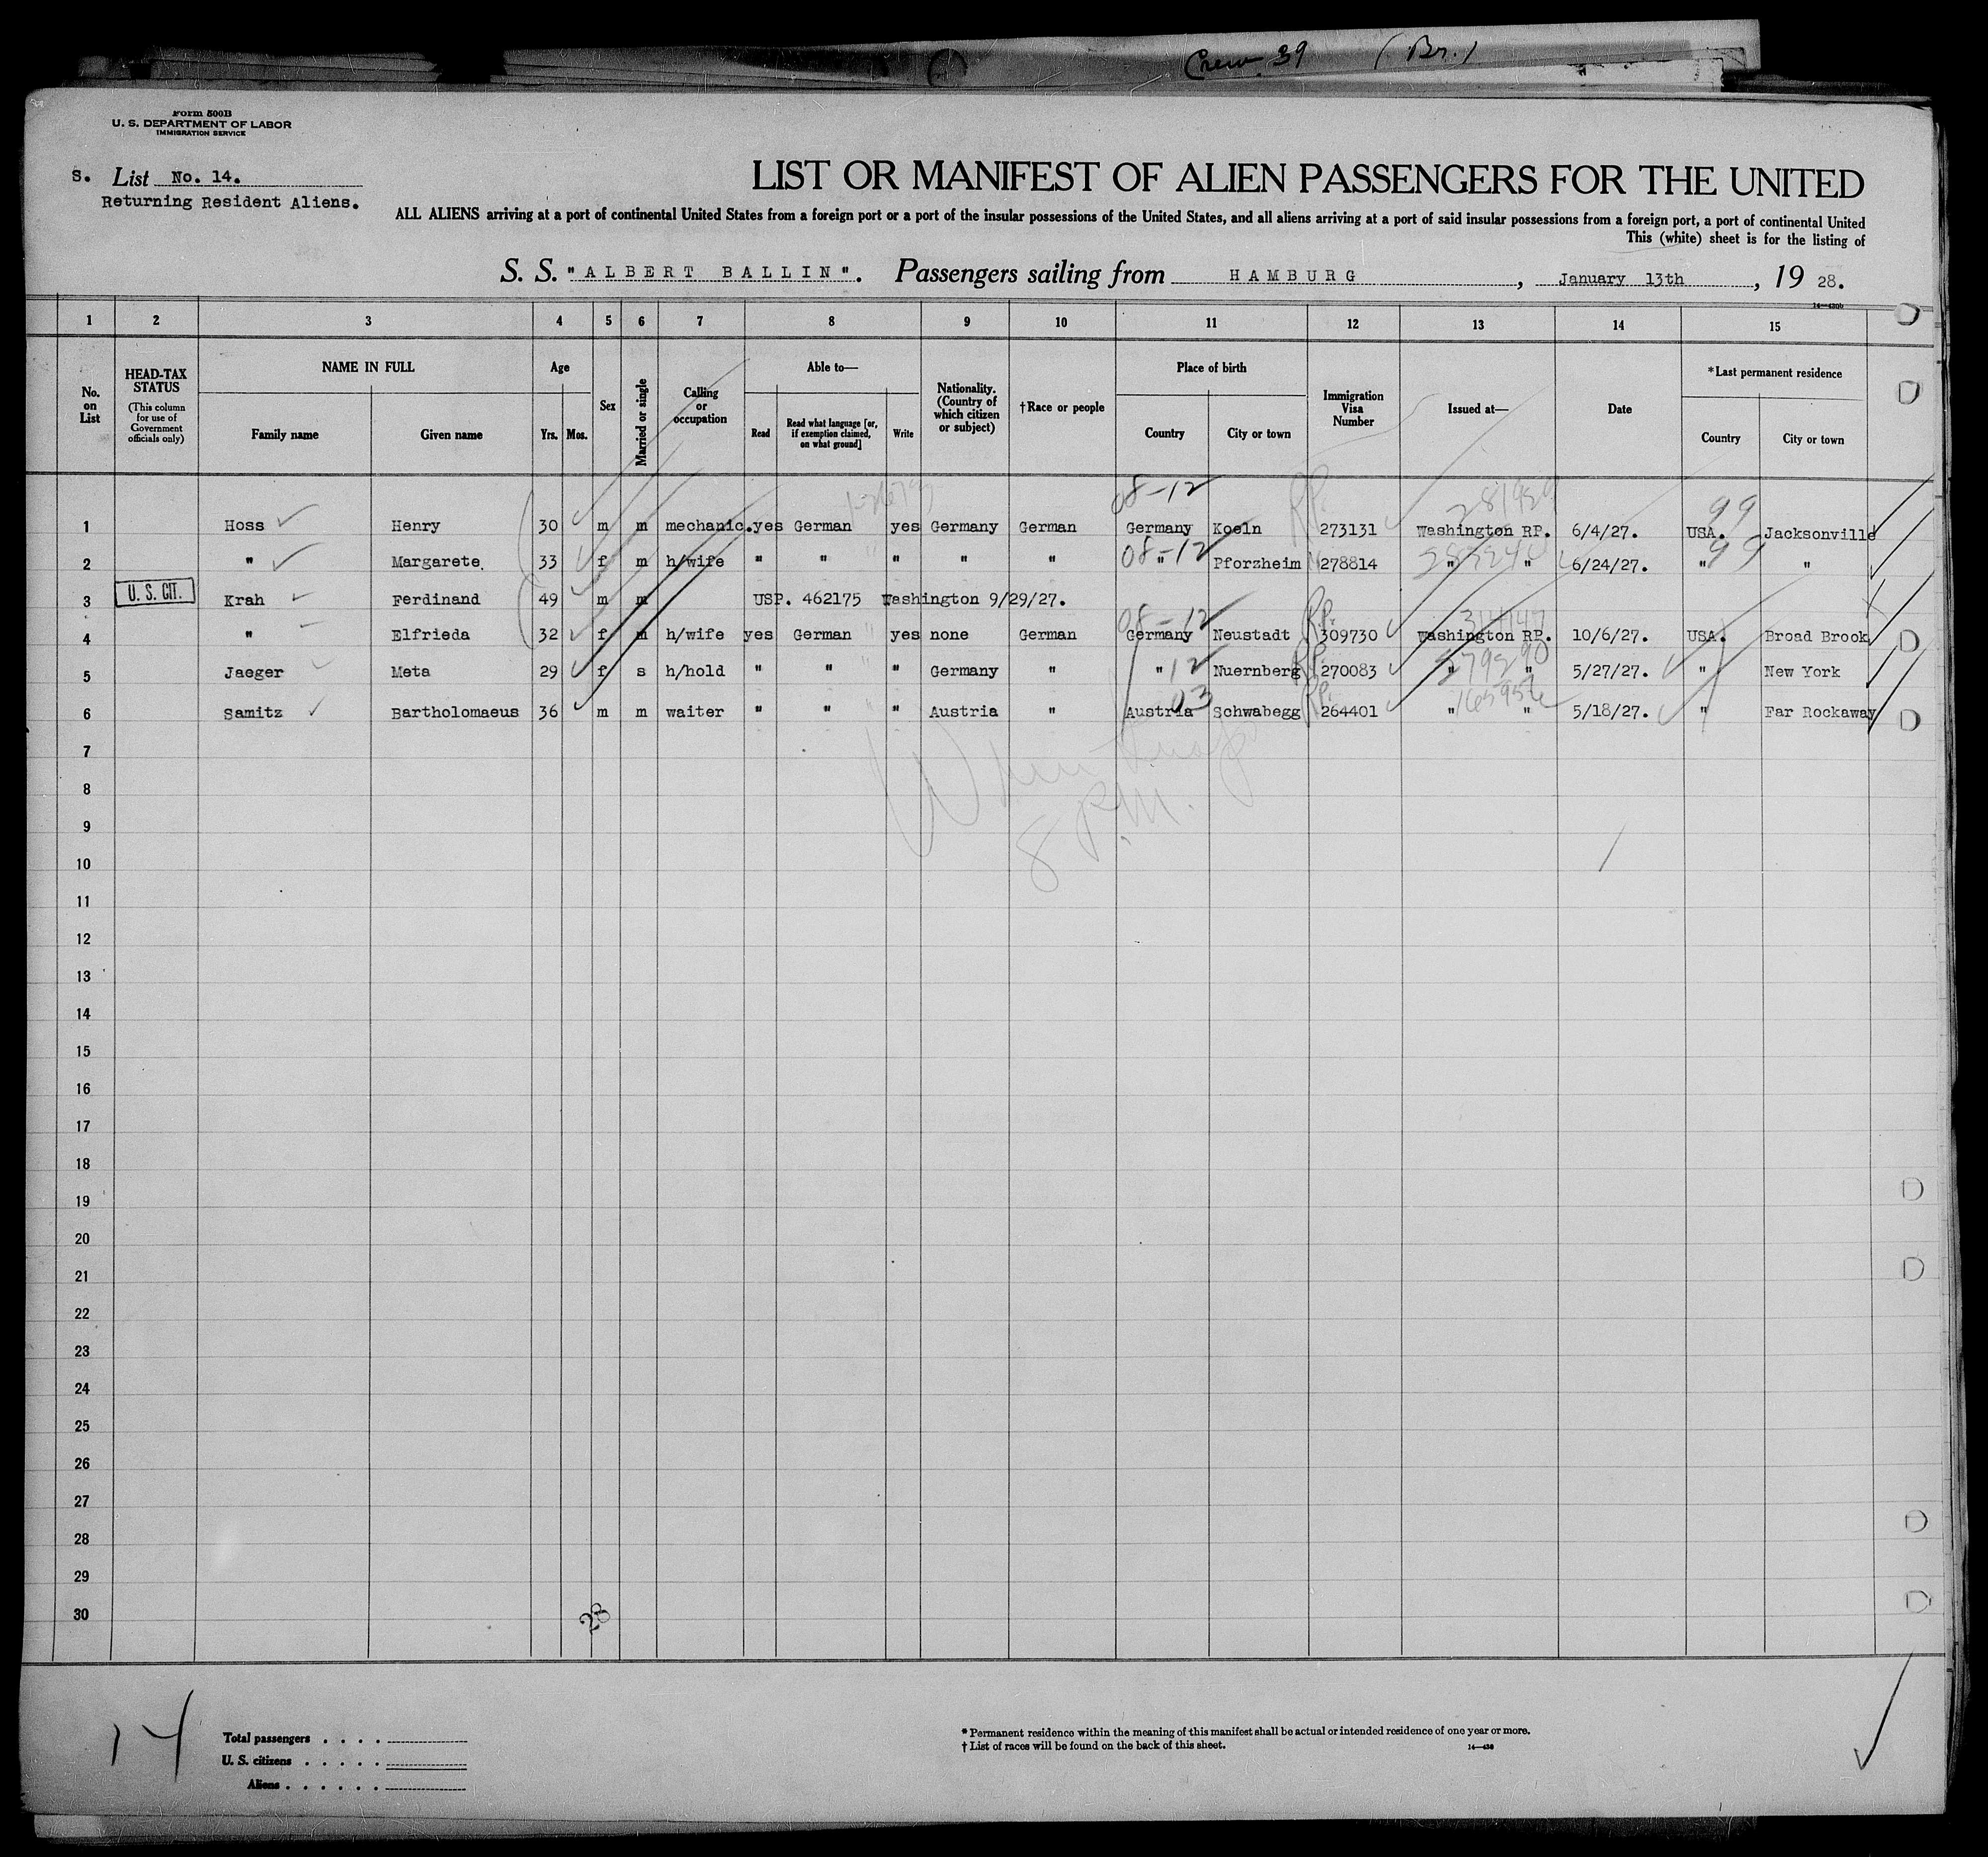 Crew 39 (Br.)
Form 500B
U. S. DEPARTMENT OF LABOR
IMMIGRATION SERVICE
S. List No. 14.
Returning Resident Aliens.
LIST OR MANIFEST OF ALIEN PASSENGERS FOR THE UNITED
ALL ALIENS arriving at a port of continental United States from a foreign port or a port of the insular possessions of the United States, and all aliens arriving at a port of said insular possessions from a foreign port, a port of continental United
This (white) sheet is for the listing of
S. S. "ALBERT BALLIN". Passengers sailing from HAMBURG, January 13th, 19 28.
14—430b
1 2 3 4 5 6 7 8 9 10 11 12 13 14 15
No. on List
HEAD-TAX STATUS (This column for use of Government officials only)
NAME IN FULL
Family name Given name
Age
Yrs. Mos.
Sex
Married or single
Calling or occupation
Able to—
Read
Read what language [or, if exemption claimed, on what ground]
Write
Nationality. (Country of which citizen or subject)
†Race or people
Place of birth
Country City or town
Immigration Visa Number
Issued at—
Date
*Last permanent residence
Country City or town
08-12 281929 99
1 Hoss Henry 30 m m mechanic. yes German yes German​y German Germany Koeln RP. 273131 Washington RP. 6/4/27. USA. Jacksonville
08-12 99
2 " Margarete. 33 f m h/wife " " " " " " Pforzheim 278814 " " 6/24/27. " "
3 U. S. CIT. Krah Ferdinand 49 m m USP. 462175 Washington 9/29/27.
08-12 R.P.
4 " Elfrieda 32 f m h/wife yes German yes none German Germany Neustadt 309730 Washington RP. 10/6/27. USA. Broad Brook
5 Jaeger Meta 29 f s h/hold " " " Germany " " 12 Nuernberg R.P. 270083 " " 5/27/27. " New York
03 R.P. 165956
6 Samitz Bartholomaeus 36 m m waiter " " " Austria " Austria Schwabegg 264401 " " 5/18/27. " Far Rockaway
7
8
8 P.M.
9
10
11
12
13
14
15
16
17
18
19
20
21
22
23
24
25
26
27
28
29
30
28
14
Total passengers
U. S. citizens
Aliens
* Permanent residence within the meaning of this manifest shall be actual or intended residence of one year or more.
† List of races will be found on the back of this sheet.
14—430